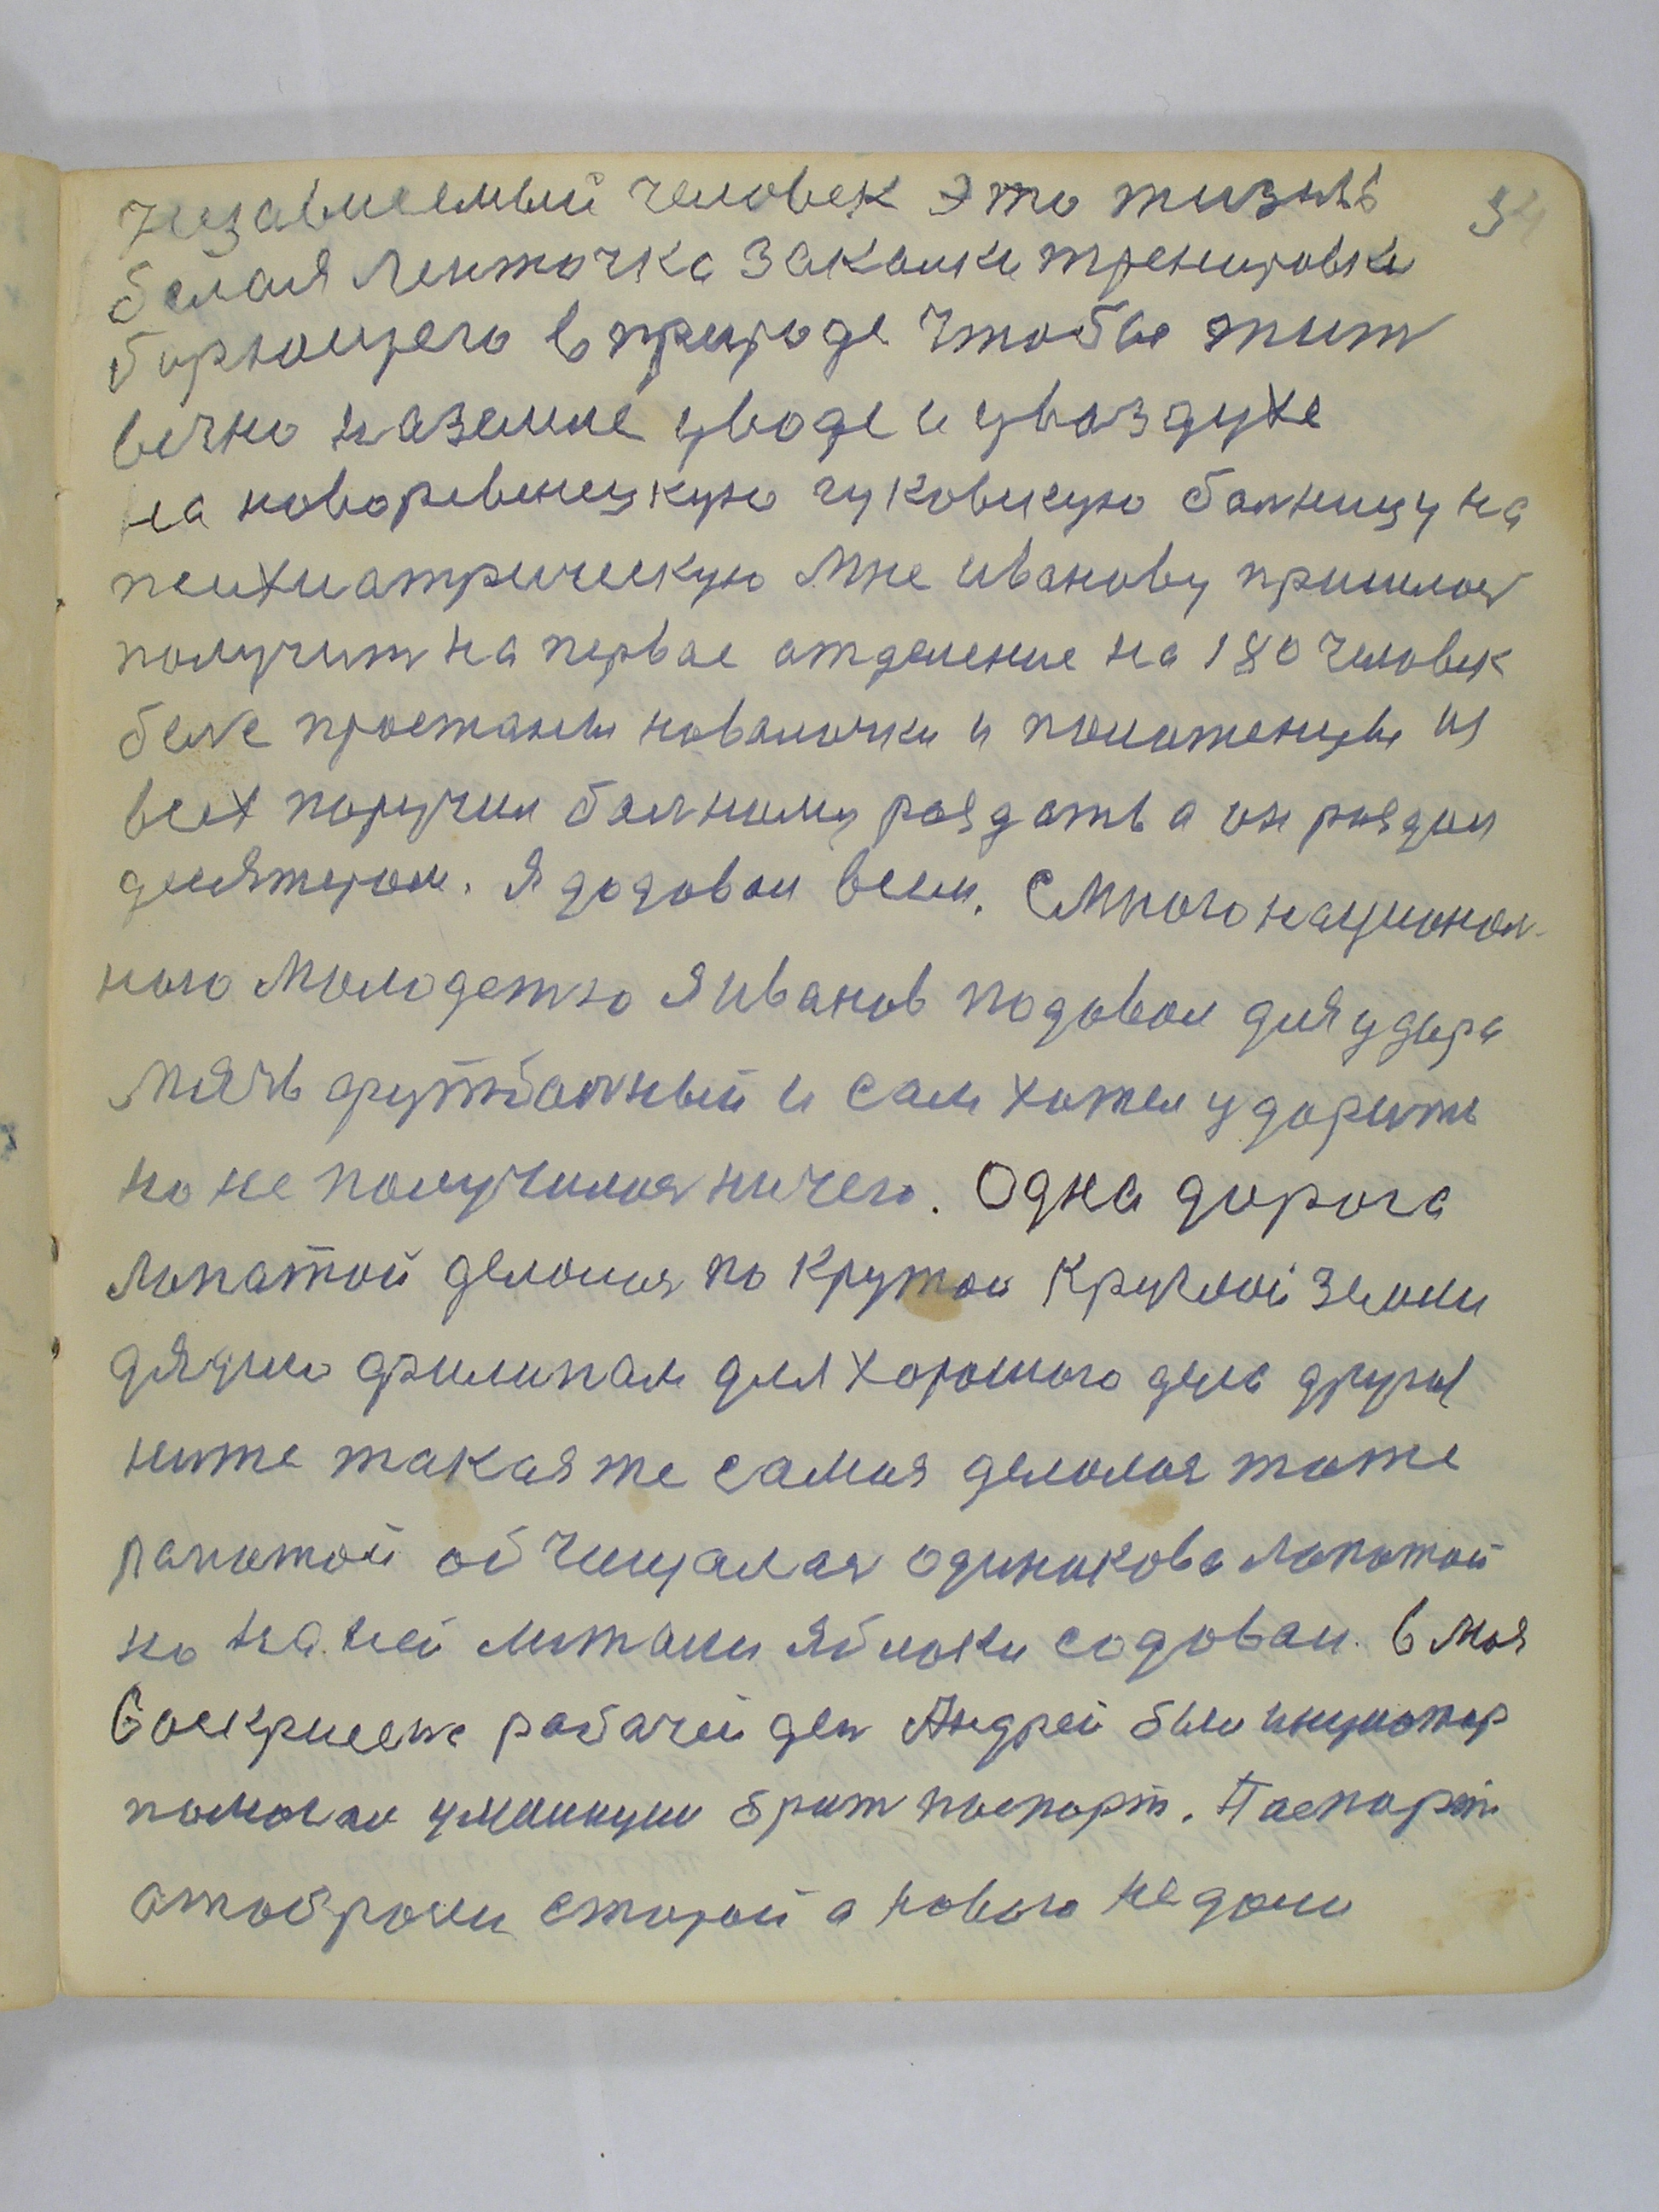 Независемый человек это жизнь 34
белая ленточка закалки тренировки
борющего в природе чтобы жит
вечно на земле у воде и у ваздухе
на новоровенецкую чуковскую балницу на
психиатрическую Мне иванову пришлося
получит на первае атделение на 180 человек
беле простани наволочки и полотенцы их
всех поручил балному раздать а он раздал
десятером. Я додовал всем. С Многонационал-
ного Молодежю Я иванов подовал для удара
мячь футбалный и сам хотел ударить
но не получилося ничего. Одна дорога
лопатой делалося по крутой круглой земли
дядию филипам для хорошого дела другая
ниже такая же самая делалося тоже
лапатой обчищалася одинакова лопатой
но на ней литали яблоки содовал. 6 мая
Воскрисене рабачей ден Андрей был
помогал брат паспорт. Паспорт
атоброли старой а нового не дали